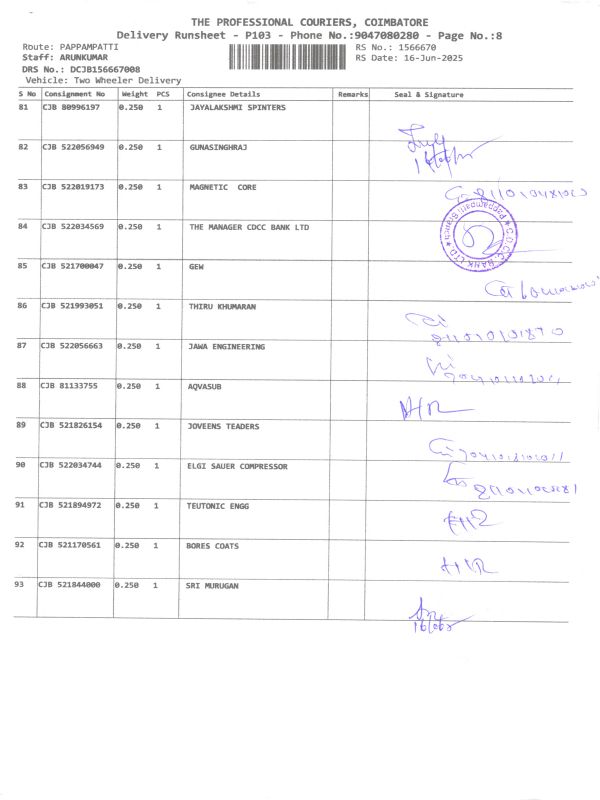 THE PROFESSIONAL COURIERS, COIMBATORE
Delivery Runsheet - P103 - Phone No.:9047080280 - Page No.:8
Route: PAPPAMPATTI RS No.: 1566670
Staff: ARUNKUMAR RS Date: 16-Jun-2025
DRS No.: DCJB156667008
Vehicle: Two Wheeler Delivery
S No Consignment No Weight PCS Consignee Details Remarks Seal & Signature
81 CJB 80996197 0.250 1 JAYALAKSHMI SPINTERS
82 CJB 522056949 0.250 1 GUNASINGHRAJ
83 CJB 522019173 0.250 1 MAGNETIC CORE
84 CJB 522034569 0.250 1 THE MANAGER CDCC BANK LTD
C.D.C.C. BANK LTD Pappampatti Branch
85 CJB 521700047 0.250 1 GEW
86 CJB 521993051 0.250 1 THIRU KHUMARAN
87 CJB 522056663 0.250 1 JAWA ENGINEERING
88 CJB 81133755 0.250 1 AQVASUB
89 CJB 521826154 0.250 1 JOVEENS TEADERS
90 CJB 522034744 0.250 1 ELGI SAUER COMPRESSOR
91 CJB 521894972 0.250 1 TEUTONIC ENGG
92 CJB 521170561 0.250 1 BORES COATS
93 CJB 521844000 0.250 1 SRI MURUGAN